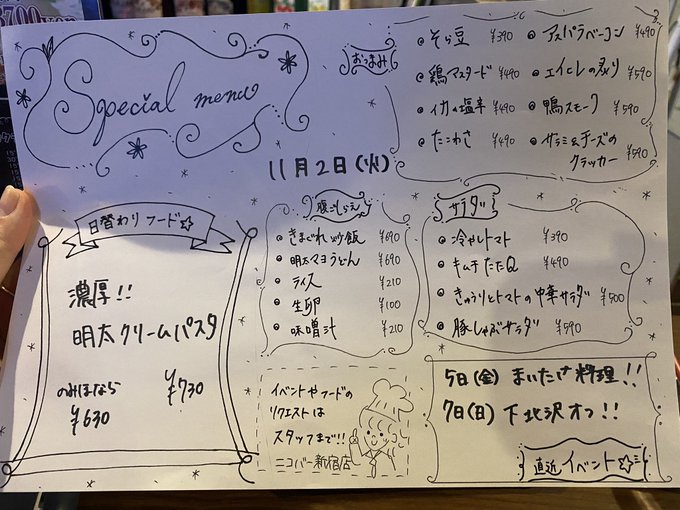 Special menu
11月2日(火)
おつまみ
そら豆 ¥390
鶏マスタード ¥490
イカの塩辛 ¥490
たこわさ ¥490
アスパラベーコン ¥490
エイヒレの炙り ¥590
鴨スモーク ¥590
サラミ&チーズの
クラッカー ¥590
日替わりフード☆
濃厚!!
明太クリームパスタ
のみほなら
¥630
¥730
腹ごしらえ
きまぐれ炒飯 ¥690
明太マヨうどん ¥690
ライス ¥210
生卵 ¥100
味噌汁 ¥210
サラダ
冷やしトマト ¥390
キムチたたQ ¥490
きゅうりとトマトの中華サラダ ¥500
豚しゃぶサラダ ¥590
イベントやフードの
リクエストは
スタッフまで!!
ニコバー新宿店
5日(金) まいたけ料理!!
7日(日) 下北沢オフ!!
直近イベント☆